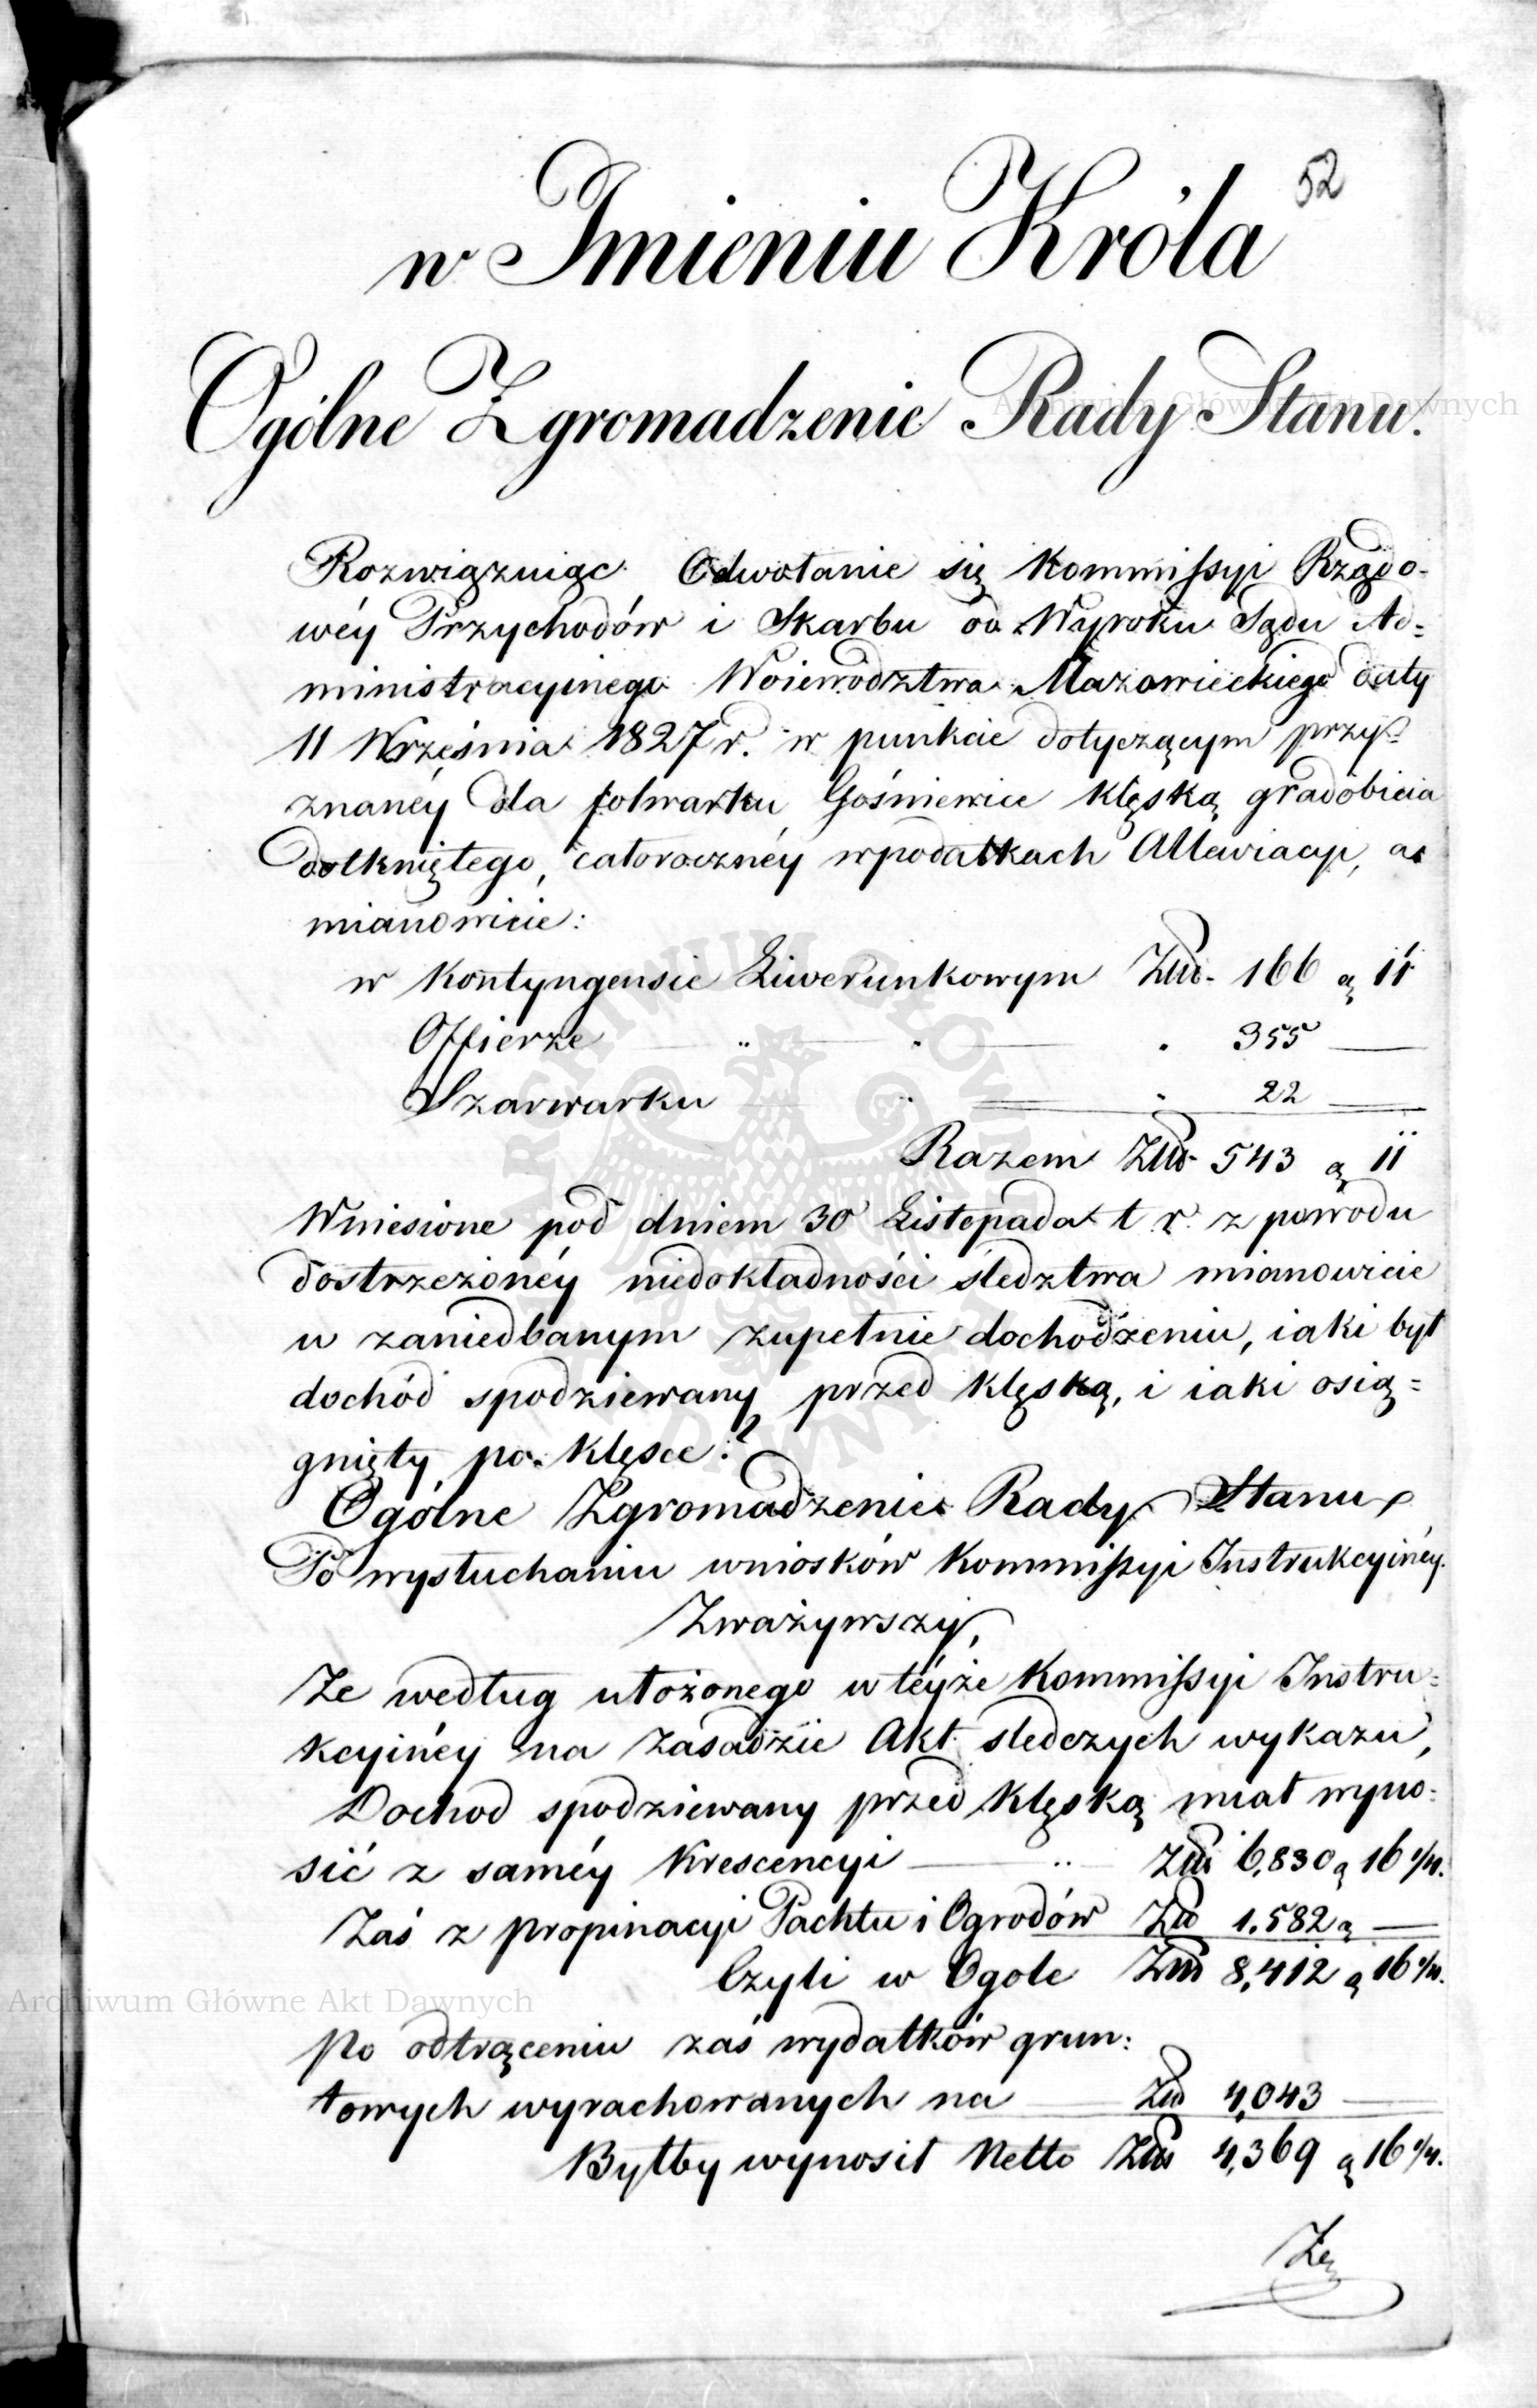 52
w Imieniu Króla
Ogólne Zgromadzenie Rady Stanu.
Rozwiązuiąc Odwołanie się Kommissyi Rządo-
wéy Przychodów i Skarbu od Wyroku Sądu Ad=
ministracyinego Woiewództwa Mazowieckiego daty
11 Września 1827 r. w punkcie dotyczącym przy=
znanéy dla folwarku Gośniewice klęską gradobicia
dotkniętego, całorocznéy w podatkach Allewiacyi, a
mianowicie:
w Kontyngensie Liwerunkowym Złł. 166 g 11
Offierze " " " 355 —
Szarwarku " " 22 —
Razem Złł. 543 g 11
Wniesione pod dniem 30 Listopada t. r. z powodu
dostrzeżonéy niedokładności śledztwa mianowicie
w zaniedbanym zupełnie dochodzeniu, iaki był
dochód spodziewany przed klęską, i iaki osią=
gnięty po klęsce:
Ogólne Zgromadzenie Rady Stanu
Po wysłuchaniu wniosków Kommissyi Instrukcyinéy.
Zważywszy,
Że według ułożonego w téyże Kommissyi Instru=
kcyinéy na zasadzie Akt śledczych wykazu,
Dochod spodziewany przed klęską miał wyno=
sić z saméy Krescencyi — " Złł 6,830 g 16 1/4.
Zaś z propinacyi Pachtu i Ogrodów Złł 1.582 g —
Czyli w Ogole Złł 8,412 g 16 1/4.
Po odtrąceniu zaś wydatków grun:
towych wyrachowanych na — Złł 4,043 —
Byłby wynosił Netto Złł 4,369 g 16 1/4.
Że
Archiwum Główne Akt Dawnych
Archiwum Główne Akt Dawnych